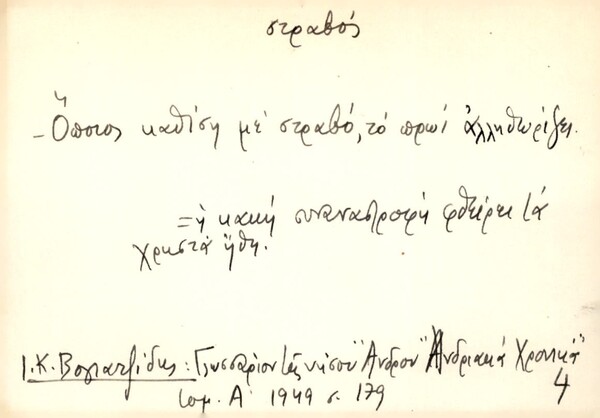 στραβός
- Ὅποιος καθίση μέ στραβό, τό πρωί ἀλληθωρίζει.
= ἡ κακή συναναστροφή φθείρει τά
χρηστά ἤθη.
Ι. Κ. Βογιατζίδης: Γλωσσάριον τῆς νήσου Ἄνδρου "Ἀνδριακά Χρονικά"
τομ. Α' 1949 σ. 179
4